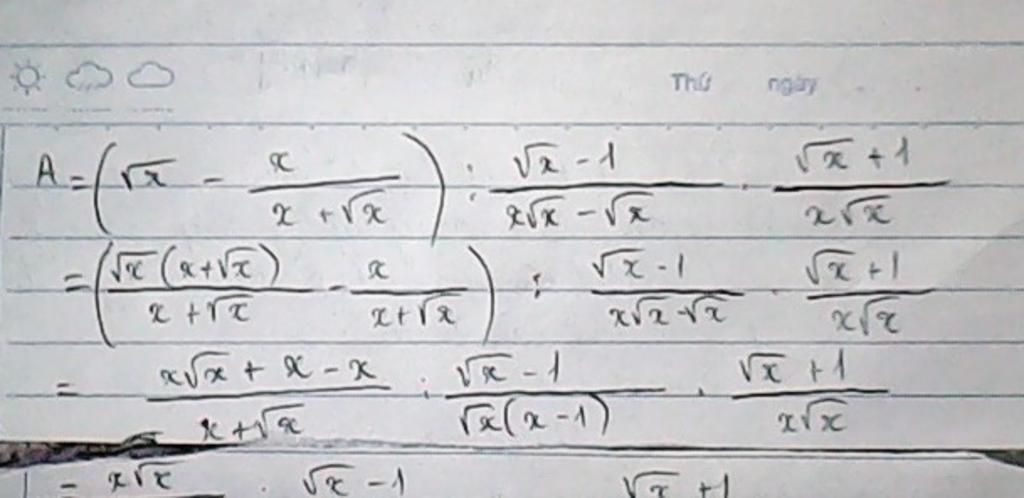 Thứ ngày
A = (√x - x/(x + √x)) : (√x - 1)/(x√x - √x) · (√x + 1)/(x√x)
= (√x(x+√x)/(x+√x) - x/(x+√x)) : (√x - 1)/(x√x - √x) · (√x + 1)/(x√x)
= (x√x + x - x)/(x+√x) : (√x - 1)/(√x(x - 1)) · (√x + 1)/(x√x)
= x√x : √x - 1 √x + 1